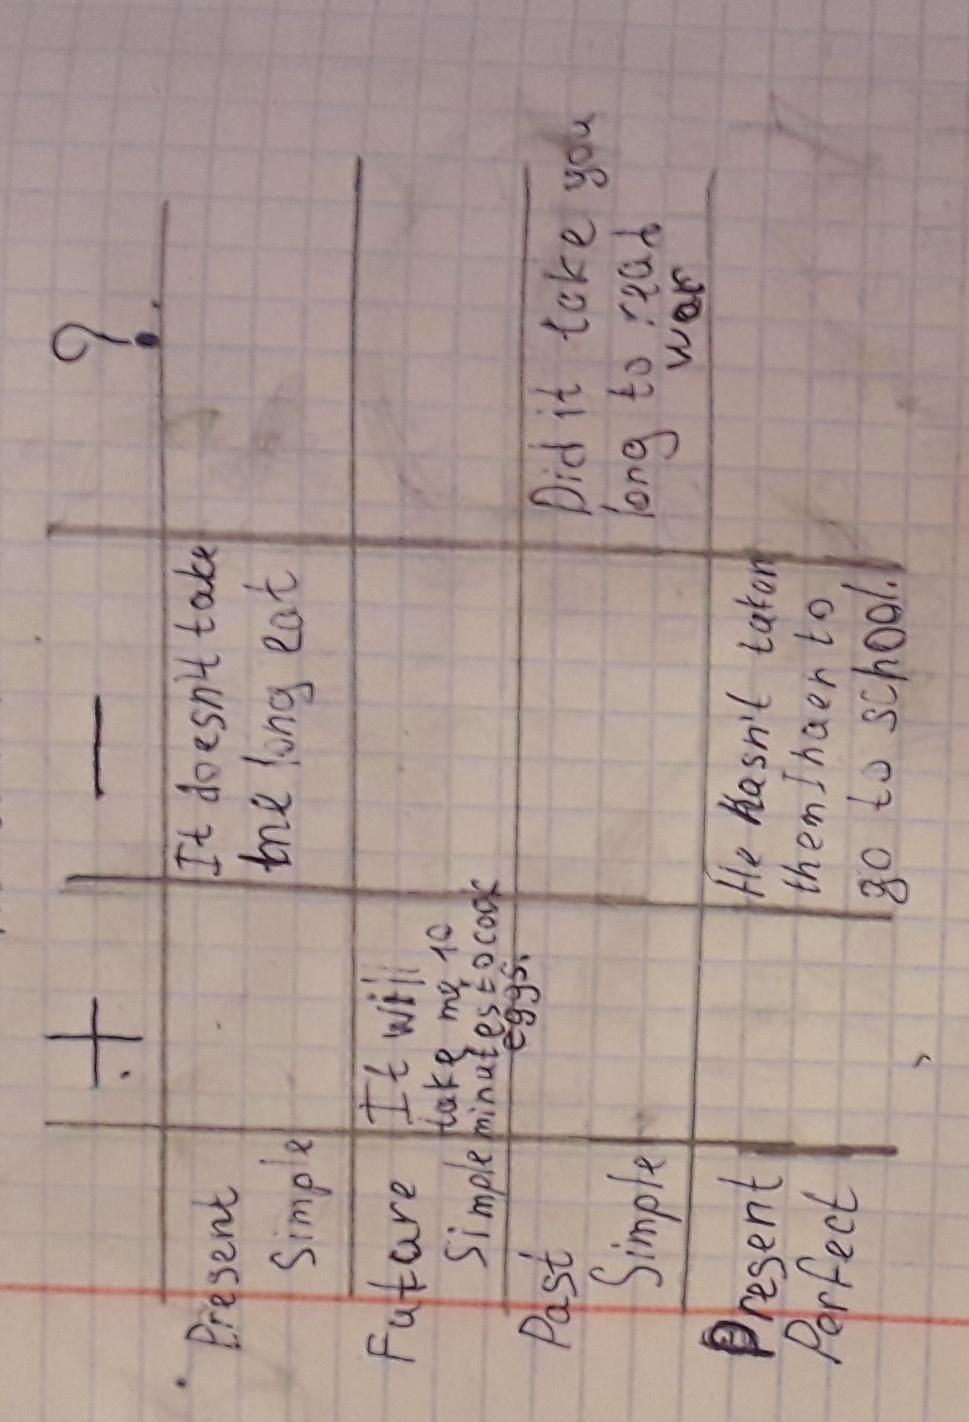 + - ?
Present
Simple
It doesn't take
me long eat
Future
Simple
It will
take me 10
minutes to cook
eggs.
Past
Simple
Did it take you
long to read
war
Present
Perfect
He hasn't taken
them 1 haer to
go to school.